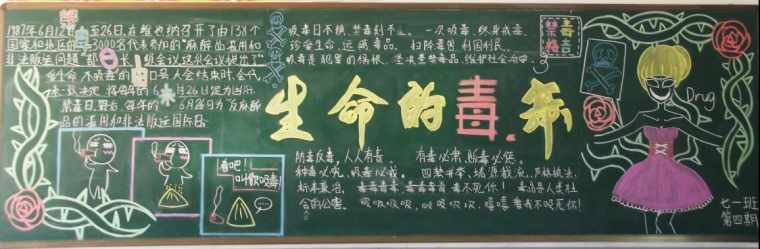 禁毒日由来
1987年6月12日至26日,在维也纳召开了由138个
国家和地区的3000名代表参加的“麻醉品滥用和
非法贩运问题”部长级会议,这次会议提出了“
爱生命,不吸毒”的口号,大会结束时,会
代表决定,将每年的6月26日定为国际
禁毒日,即每年的6月26日为反麻醉
品的滥用和非法贩运国际日。
吸毒日不横,禁毒刻不。一次吸毒,终身戒毒。
珍爱生命,远离毒品。扫除毒害,利国利民。
吸毒是犯罪的祸根。坚决禁禁毒品,维护社会治安。
禁毒
格言
生命的毒杀
防毒反毒,人人有责 有毒必肃,贩毒必惩。
种毒必究,吸毒必戒。四禁并举,堵源截流,严格执法,
标本兼治。毒毒毒毒毒毒毒毒,毒不死你!毒品是人类社
会的公害。吸吸吸吸,吸吸吸吸,嘻嘻看我不吸死你!
看吧!
叫你吸毒!
Drug
七一班
第四期